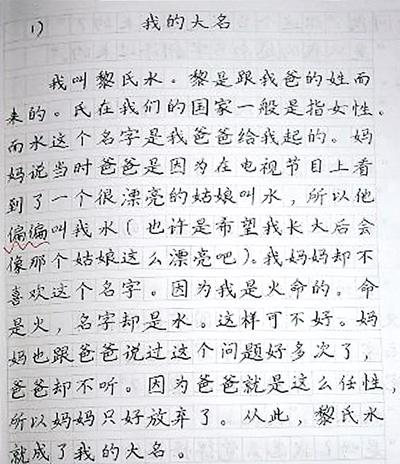 1) 我的大名
我叫黎氏水。黎是跟我爸的姓而
来的。氏在我们的国家一般是指女性。
而水这个名字是我爸爸给我起的。妈
妈说当时爸爸是因为在电视节目上看
到了一个很漂亮的姑娘叫水，所以他
偏偏叫我水（也许是希望我长大后会
像那个姑娘这么漂亮吧）。我妈妈却不
喜欢这个名字。因为我是火命的。命
是火，名字却是水。这样可不好。妈
妈也跟爸爸说过这个问题好多次了，
爸爸却不听。因为爸爸就是这么任性，
所以妈妈只好放弃了。从此，黎氏水
就成了我的大名。